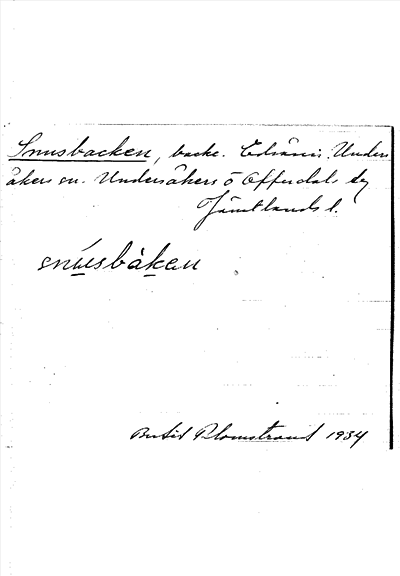 Snusbacken, backe. Edsåsen. Unders
åkers sn. Undersåkers o Offerdals tg
Jämtlands l.
snúsbàken
Bertil Blomstrand 1934